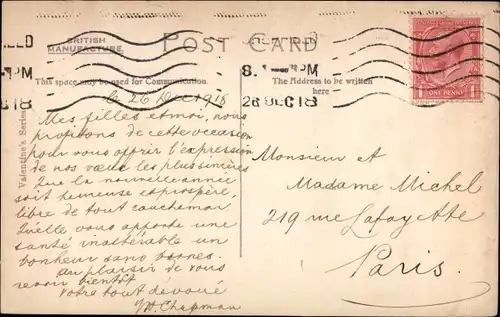 BRITISH
MANUFACTURE.
POST CARD
This space may be used for Communication.
The Address to be written
here
Valentine's Series
8. PM
26 DEC 18
ONE PENNY
Le 26 Dec 1918
Mes filles et moi, nous
profitons de cette occasion
pour vous offrir l'expression
de nos vœux les plus sincères
Que la nouvelle année
soit heureuse et prospère
libre de tout cauchemar
Qu'elle vous apporte une
santé inaltérable un
bonheur sans bornes.
Au plaisir de vous
revoir bientôt
Votre tout dévoué
Chapman
Monsieur et
Madame Michel
219 rue Lafayette
Paris.